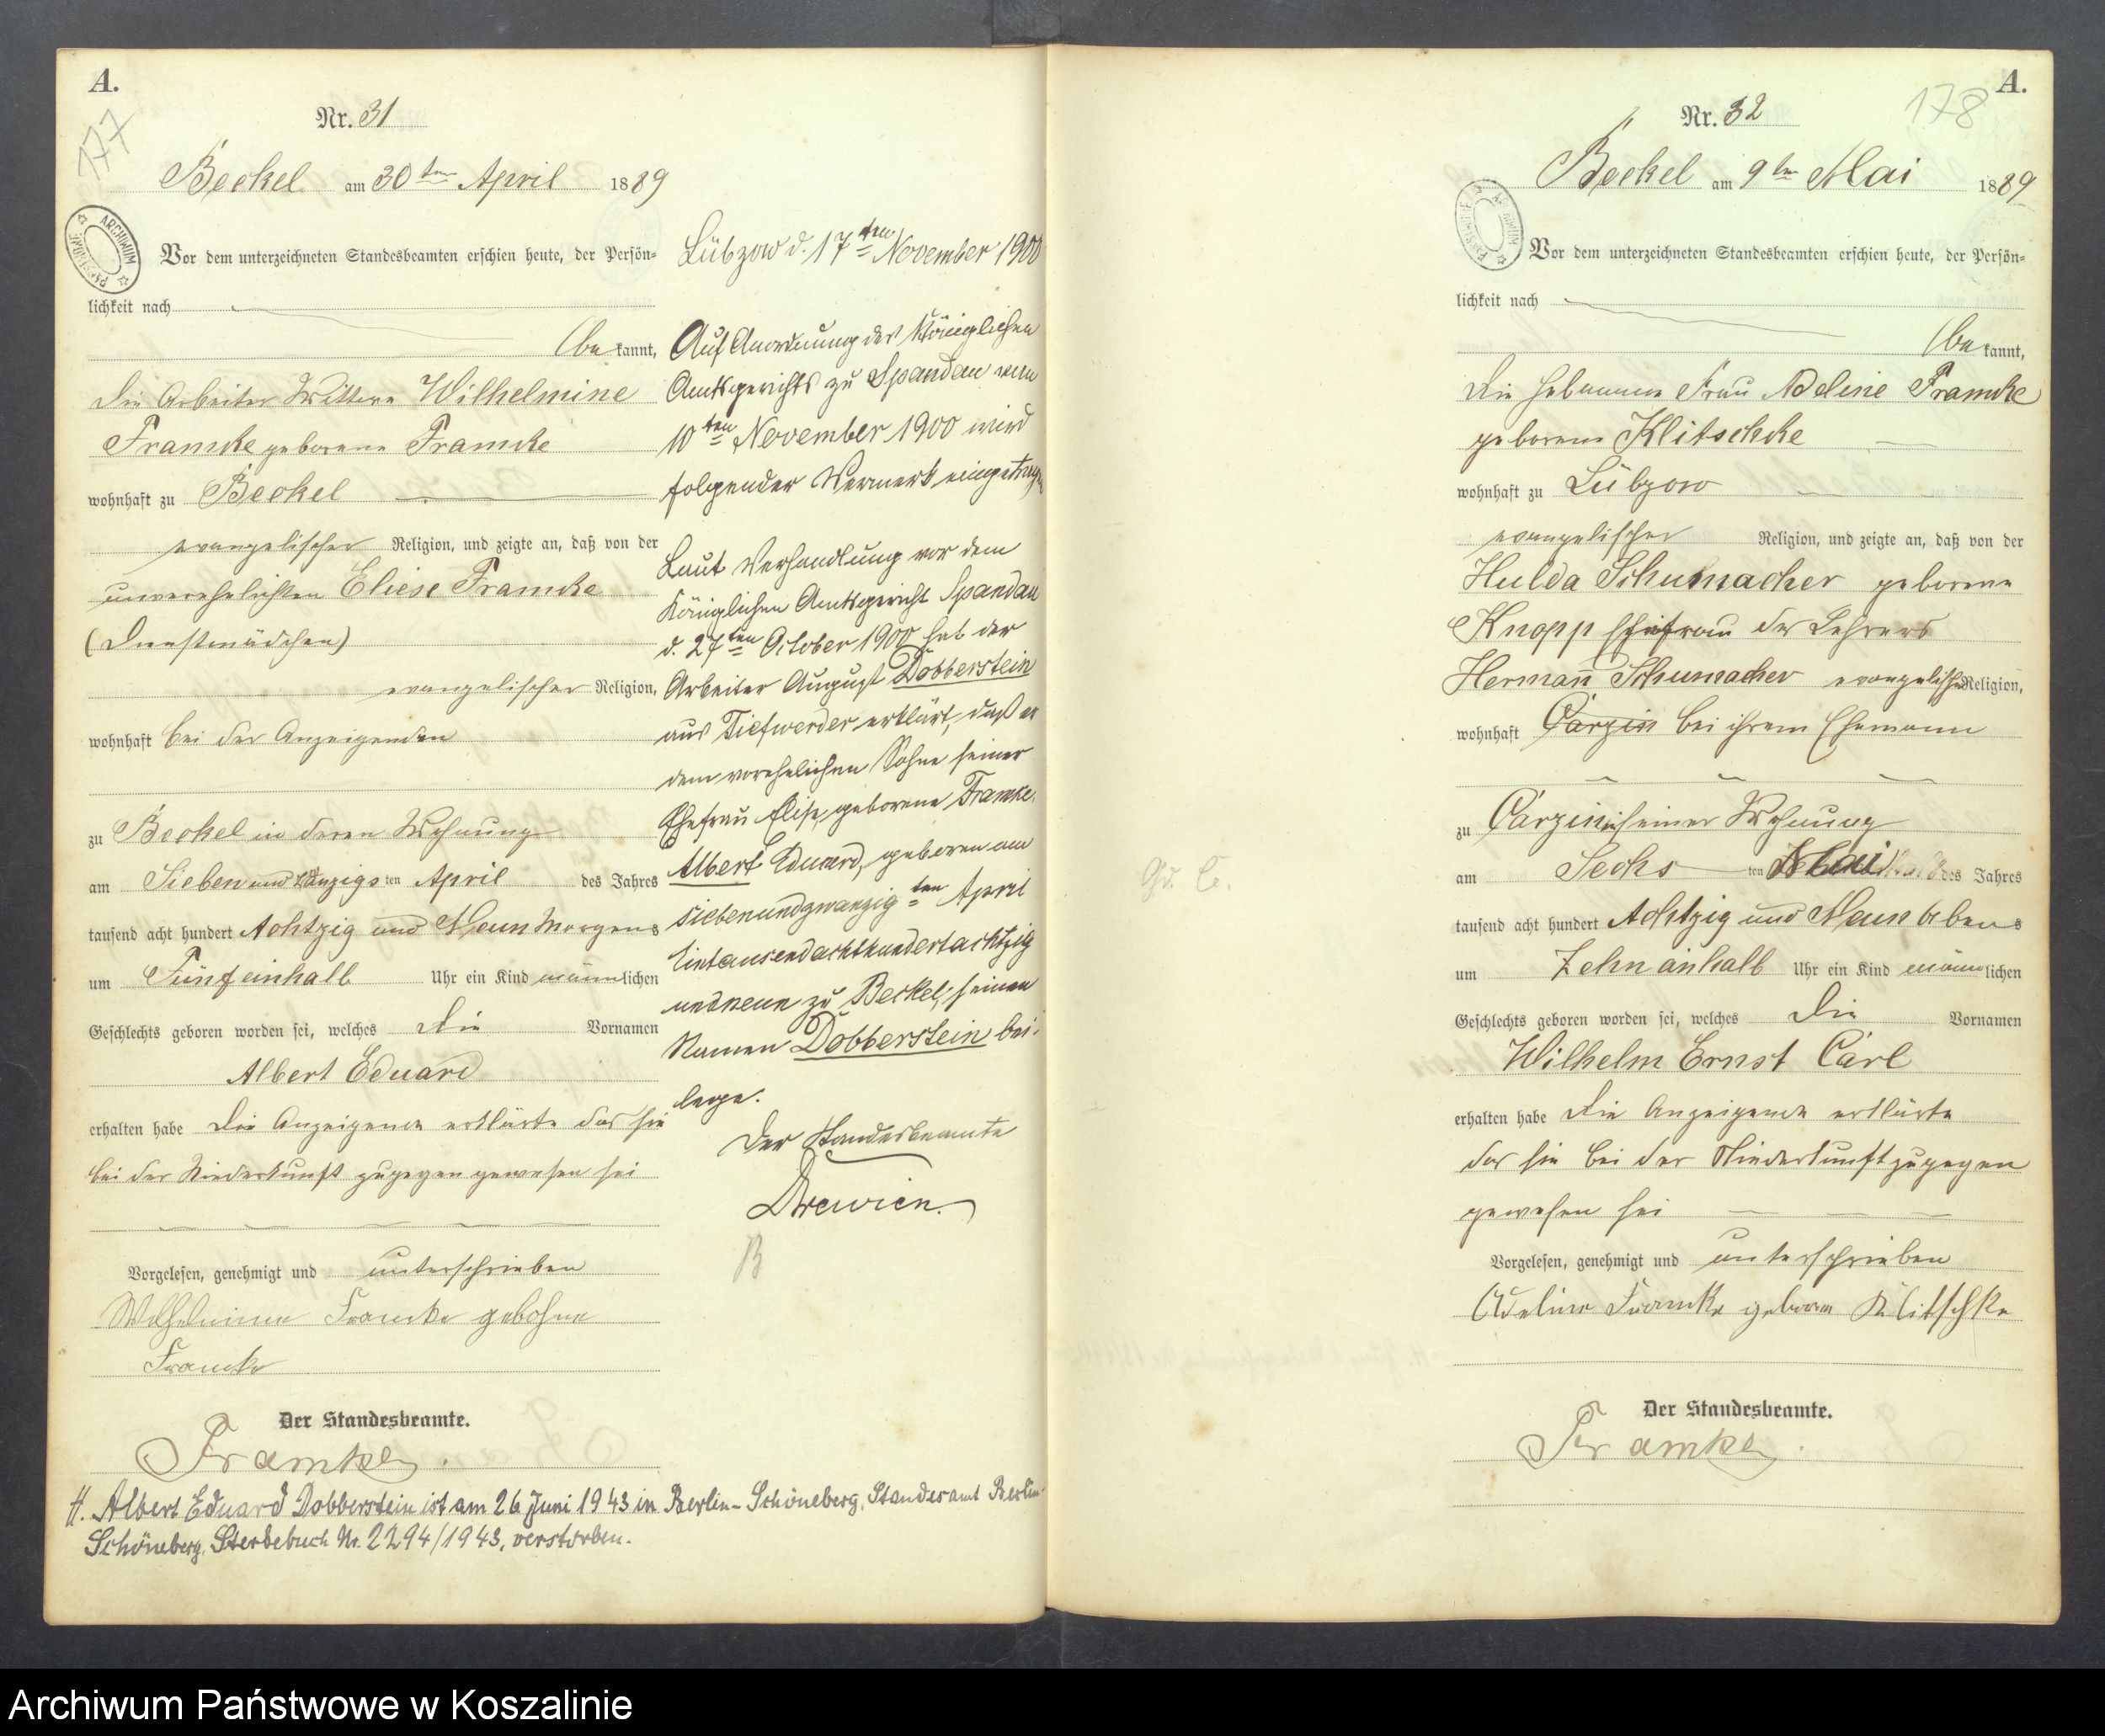 A.
177
Nr. 31
Beckel am 30ten April 1889
Vor dem unterzeichneten Standesbeamten erschien heute, der Persön-
lichkeit nach
be kannt,
die Arbeiter Wittwe Wilhelmine
Framcke geborene Framcke
wohnhaft zu Beckel
evangelischer Religion, und zeigte an, daß von der
unverehelichten Eliese Framcke
(Dienstmädchen)
evangelischer Religion,
wohnhaft bei der Anzeigenden
zu Beckel in deren Wohnung
am Sieben und zwanzigs ten April des Jahres
tausend acht hundert Achtzig und Neun Morgens
um Fünf einhalb Uhr ein Kind männlichen
Geschlechts geboren worden sei, welches die Vornamen
Albert Eduard
erhalten habe Die Anzeigende erklärte das sie
bei der Niederkunft zugegen gewesen sei
Vorgelesen, genehmigt und unterschrieben
Wilhelmine Framcke gebohrne
Framcke
Der Standesbeamte.
Framke
H. Albert Eduard Dobberstein ist am 26. Juni 1943 in Berlin-Schöneberg, Standesamt Berlin-
Schöneberg, Sterbebuch Nr. 2294/1943, verstorben.
Lübzow d. 17ten November 1900
Auf Anordnung des Königlichen
Amtsgerichts zu Spandau vom
10ten November 1900 wird
folgender Vermerk eingetragen
Laut Verhandlung vor dem
Königlichen Amtsgericht Spandau
d. 27ten October 1900 hat der
Arbeiter August Dobberstein
aus Tiefwerder erklärt, daß er
dem vorehelichen Sohne seiner
Ehefrau Elise, geborene Framke,
Albert Eduard, geboren am
siebenundzwanzigten April
Eintausendachthundertachtzig
undneun zu Beckel, seinen
Namen Dobberstein bei-
lege.
Der Standesbeamte
Drewien.
B
A.
178
Nr. 32
Beckel am 9ten Mai 1889
Vor dem unterzeichneten Standesbeamten erschien heute, der Persön-
lichkeit nach
be kannt,
die Hebamme Frau Adeline Framcke
geborene Klitschke
wohnhaft zu Lübzow
evangelischer Religion, und zeigte an, daß von der
Hulda Schumacher geborene
Knopp Ehefrau des Lehrers
Hermann Schumacher evangelischer Religion,
wohnhaft Carzin bei ihrem Ehemann
zu Carzin in seiner Wohnung
am Sechs ten Mai des Jahres
tausend acht hundert Achtzig und Neun Abens
um Zehn einhalb Uhr ein Kind männlichen
Geschlechts geboren worden sei, welches die Vornamen
Wilhelm Ernst Carl
erhalten habe Die Anzeigende erklärte
das sie bei der Niederkunft zugegen
gewesen sei
Vorgelesen, genehmigt und unterschrieben
Adeline Framke geborene Klitschke
Der Standesbeamte.
Framke
Archiwum Państwowe w Koszalinie